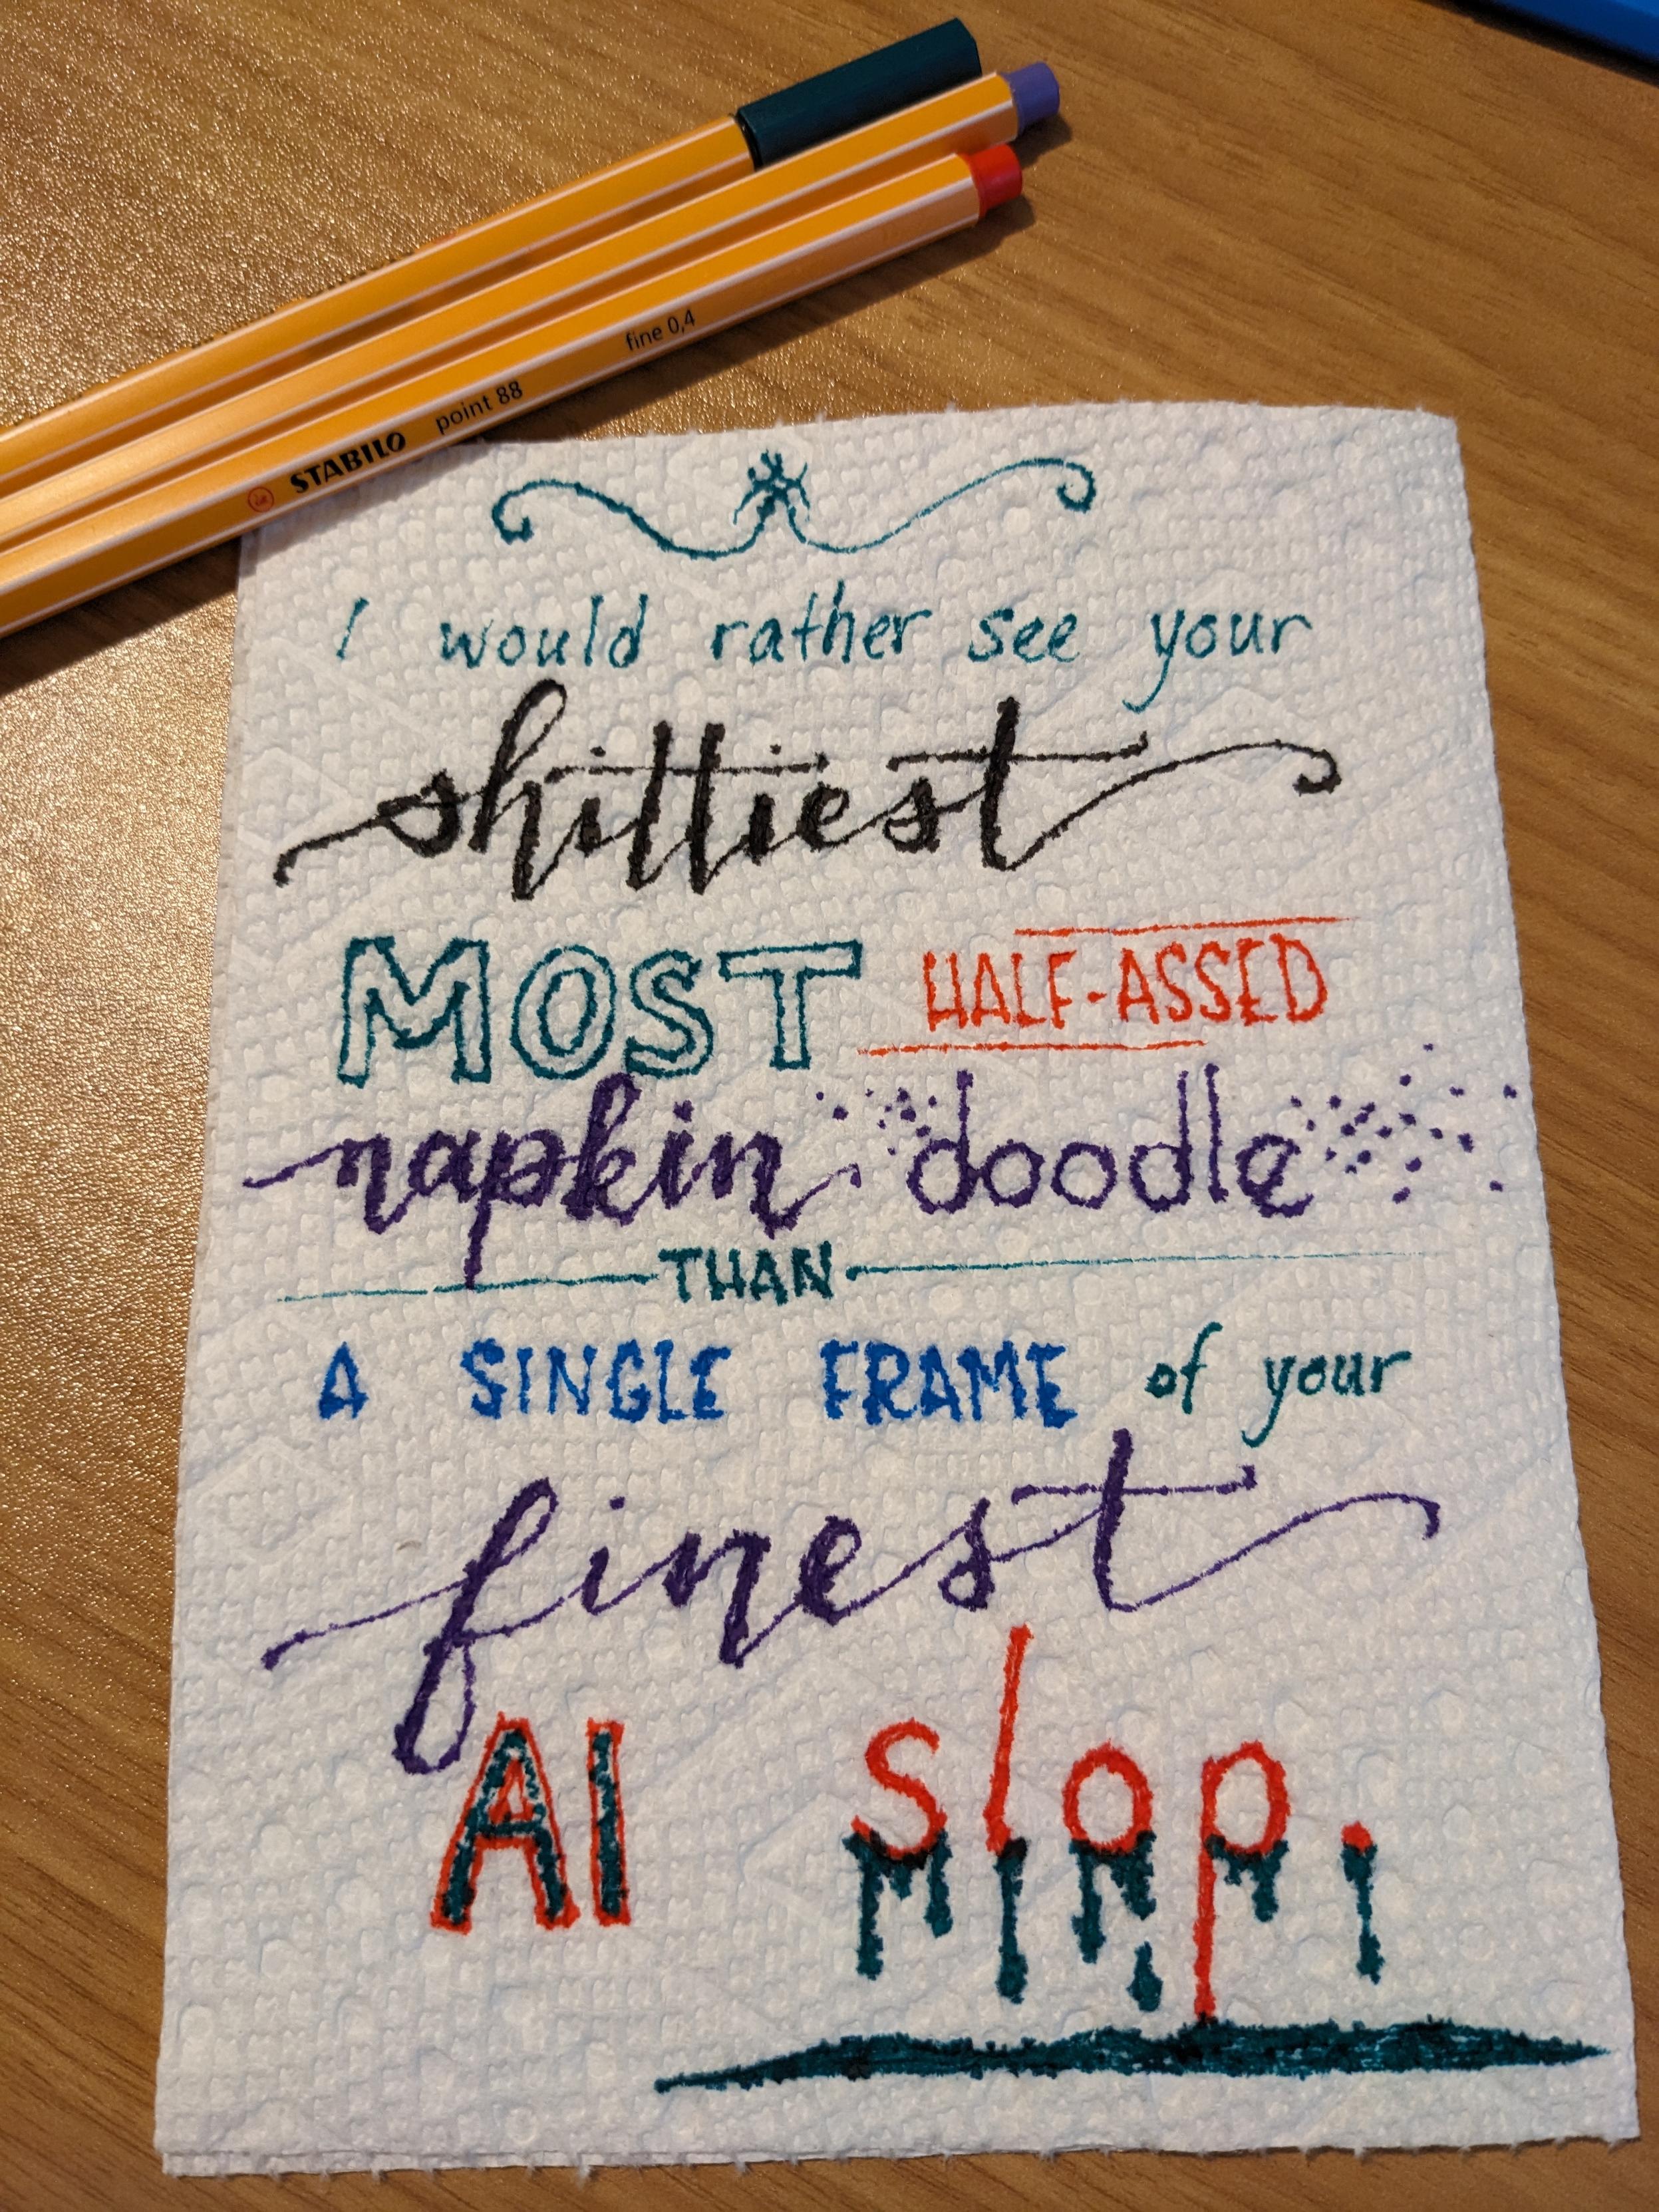 STABILO point 88 fine 0,4
I would rather see your
shittiest
MOST HALF-ASSED
napkin doodle
THAN
A SINGLE FRAME of your
finest
AI slop.